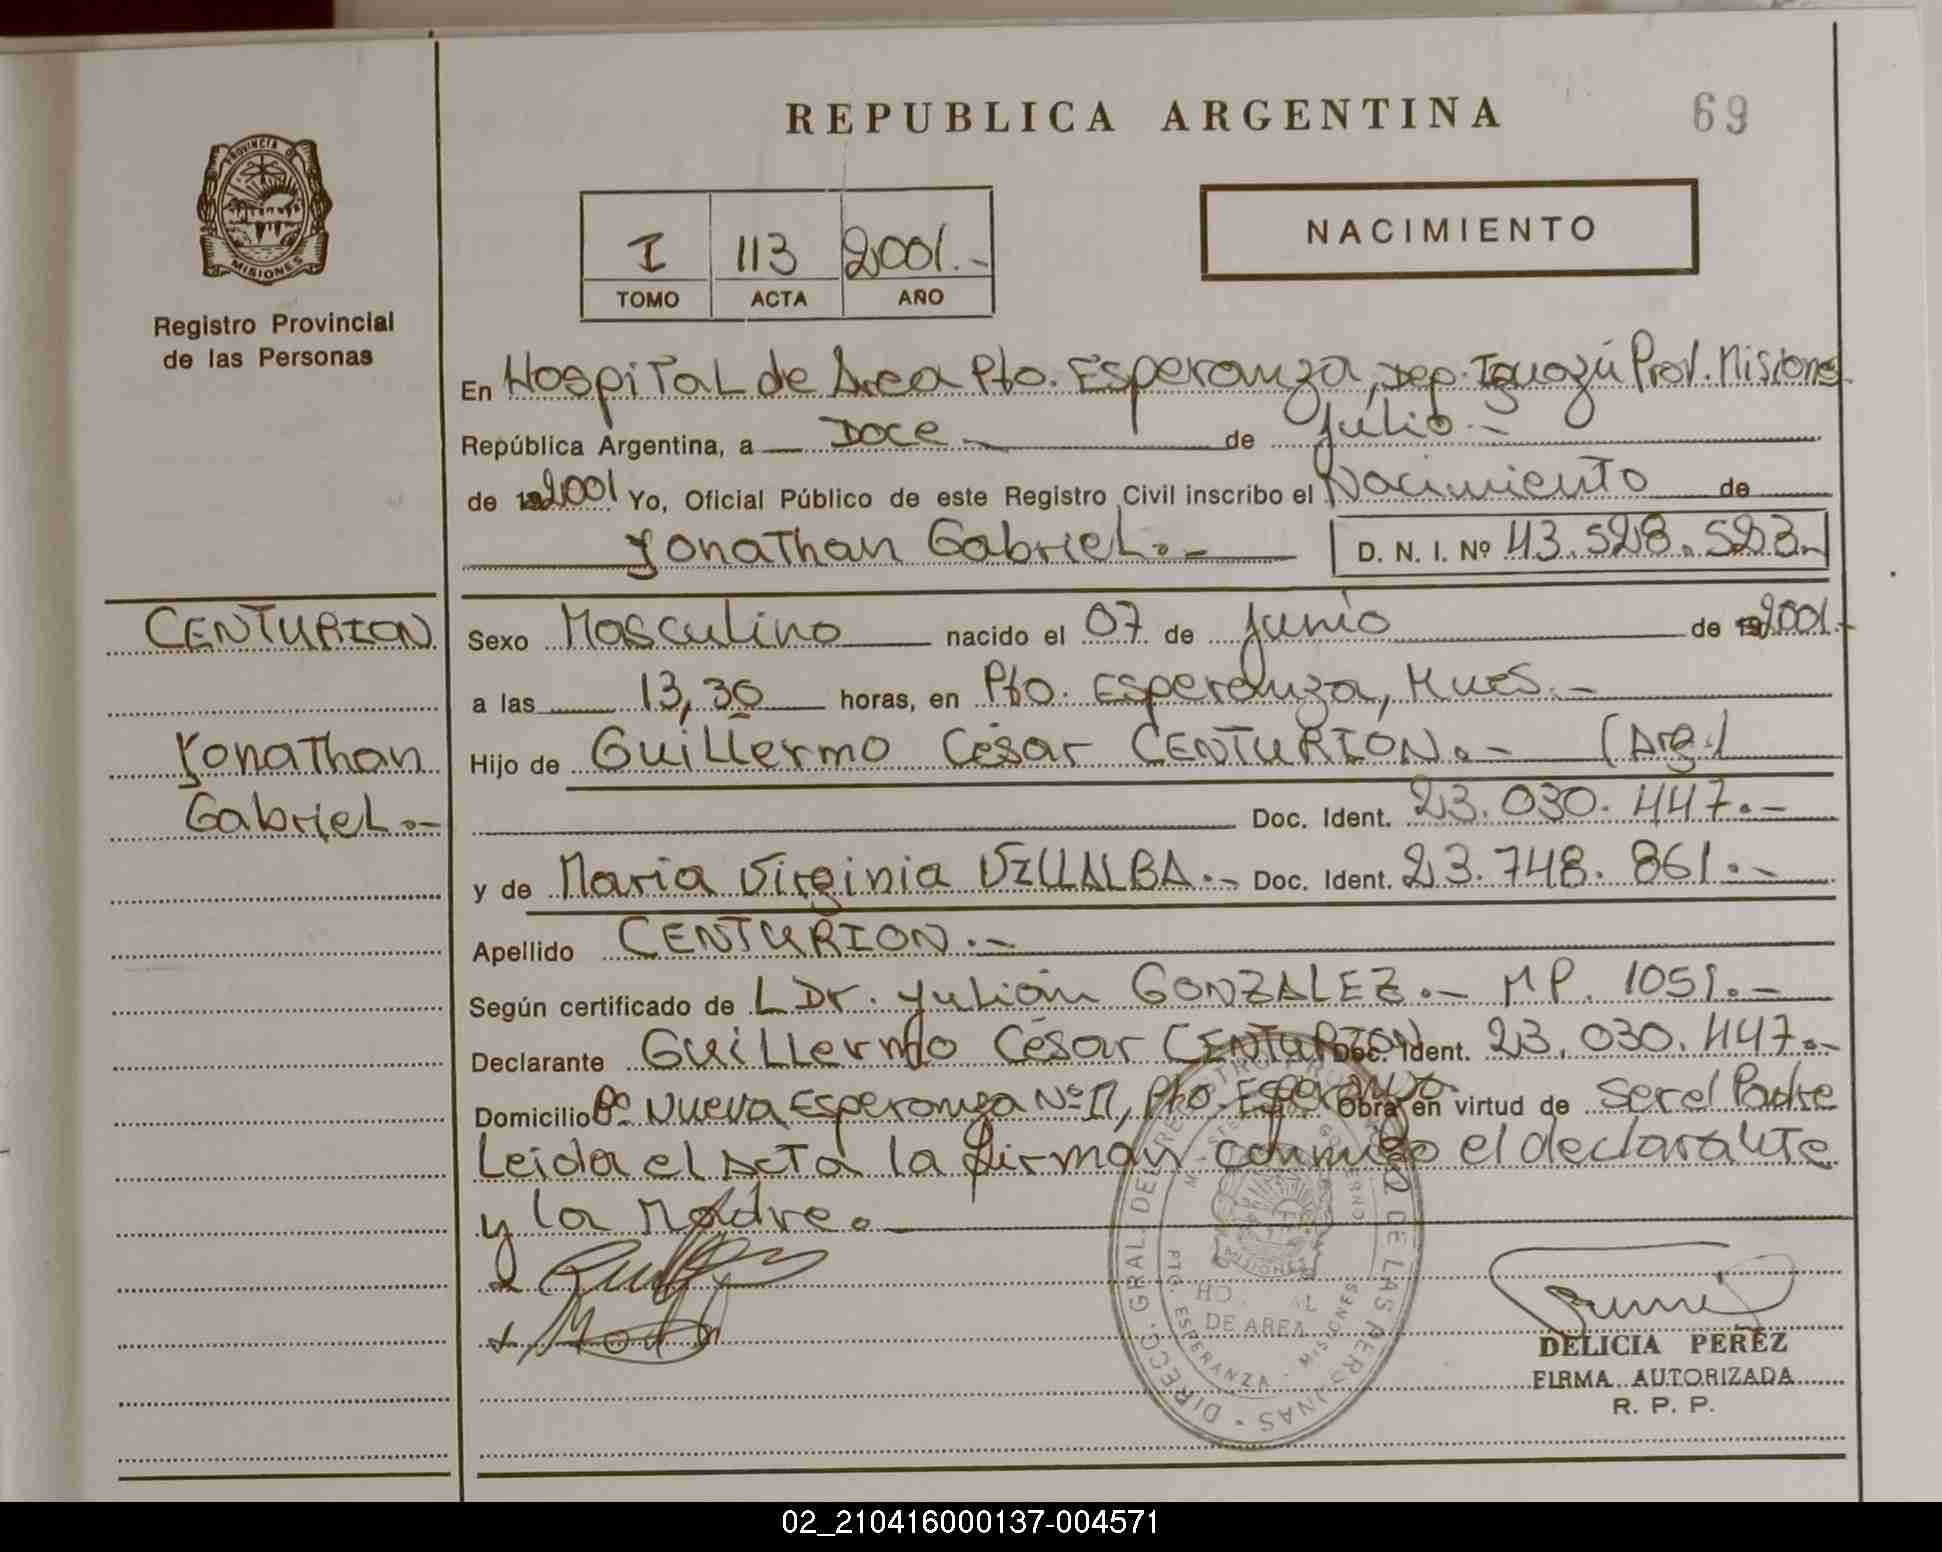 REPUBLICA ARGENTINA
69
PROVINCIA DE
MISIONES
Registro Provincial
de las Personas
I 113 2001.-
TOMO ACTA AÑO
NACIMIENTO
En Hospital de Area Pto. Esperanza, Dep. Iguazú Prov. Misiones
República Argentina, a Doce.- de Julio.-
de 2001 Yo, Oficial Público de este Registro Civil inscribo el Nacimiento de
Jonathan Gabriel.- D. N. I. Nº 43.528.523.-
CENTURION
Jonathan
Gabriel.-
Sexo Masculino nacido el 07 de Junio de 2001.-
a las 13,30 horas, en Pto. Esperanza, Mnes.-
Hijo de Guillermo César CENTURION.- (Arg.)
Doc. Ident. 23.030.447.-
y de Maria Virginia VILLALBA.- Doc. Ident. 23.748.861.-
Apellido CENTURION.-
Según certificado de L Dr. Julián GONZALEZ.- MP. 1051.-
Declarante Guillermo César CENTURION Doc. Ident. 23.030.447.-
Domicilio Bº Nueva Esperanza Nº 17, Pto. Esperanza Obra en virtud de ser el Padre
Leida el Acta la firman conmigo el declarante
y la Madre.
DIRECC. GRAL. DEL REGISTRO PROV. DE LAS PERSONAS
MINISTERIO GOBIERNO
MISIONES
HOSPITAL
DE AREA
PTO. ESPERANZA - MISIONES
DELICIA PEREZ
FIRMA AUTORIZADA
R. P. P.
02_210416000137-004571